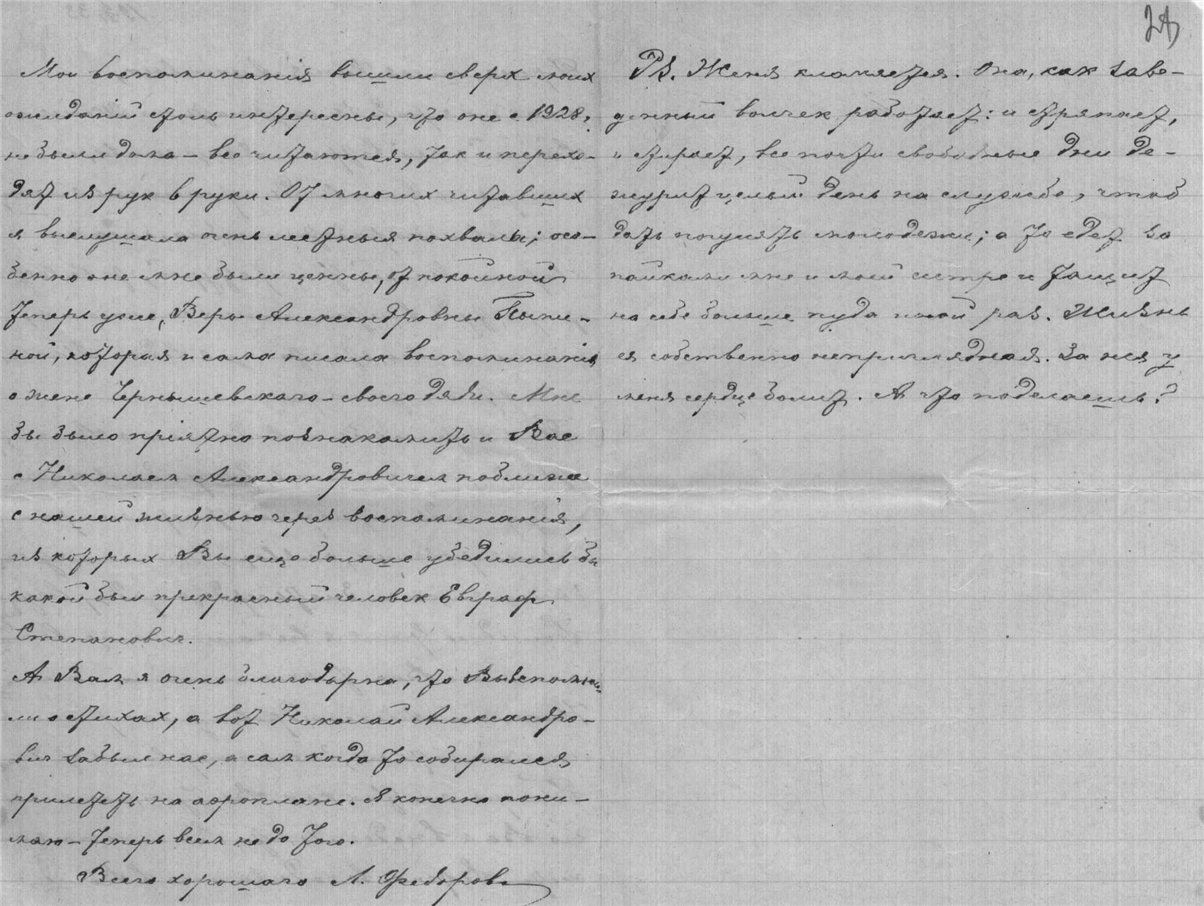 24
Мои воспоминанія вышли сверх моих
ожиданій столь интересны, что оне с 1928 г.
не были дома – все читаются, так и перехо-
дят из рук в руки. От многих читавших
я выслушала очень лестныя похвалы; осо-
бенно оне мне были ценны, от покойной
теперь уже, Веры Александровны Пыпи-
ной, которая и сама писала воспоминанія
о жене Чернышевскаго – своего дяди. Мне
бы было приятно познакомить и Вас
с Николаем Александровичем поближе
с нашей жизнью через воспоминанія,
из которых Вы еще больше убедились бы
какой был прекрасный человек Евграф
Степанович.
А Вам я очень благодарна, что Вы вспомни-
ли о стихах, а вот Николай Александро-
вич забыл нас, а сам когда то собирался
прилететь на аэроплане. Я конечно пони-
маю – теперь всем не до того.
Всего хорошаго Л. Федорова
PS. Женя кланяется. Она, как заве-
денный волчек работает: и стряпает,
и стирает, все почти свободные дни де-
журит целый день на службе, чтоб
дать погулять молодежи; а то едет за
пайками мне и моей сестре и тащит
на себе больше пуда иной раз. Жизнь
ея собственно неприглядная. За нея у
меня сердце болит. А что поделаешь?